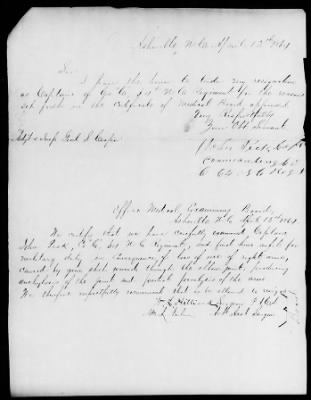 Asheville, N.C. April 12th 1864
Sir
I have the honor to tender my resignation
as Captain of Co C, 64th N C Regiment for the reasons
set forth in the Certificate of Medical Board, appended
Very Respectfully
Your Obt Servant
Peek, Capt
Commanding Co
C 64 N C Regt
Adjt & Insp Genl S. Cooper
Office Medical Examining Board,
Asheville N.C. April 12th 1864
We certify that we have carefully examined Captain
John Peek, Co C, 64 N C Regiment, and find him unfit for
military duty in consequence of loss of use of right arm,
caused by gun shot wound through the elbow joint, producing
anchylosis of the joint and partial paralysis of the arm
We therefore respectfully recommend that he be allowed to resign
W. L. Hilliard Surgeon
M. L. Asst Surgeon